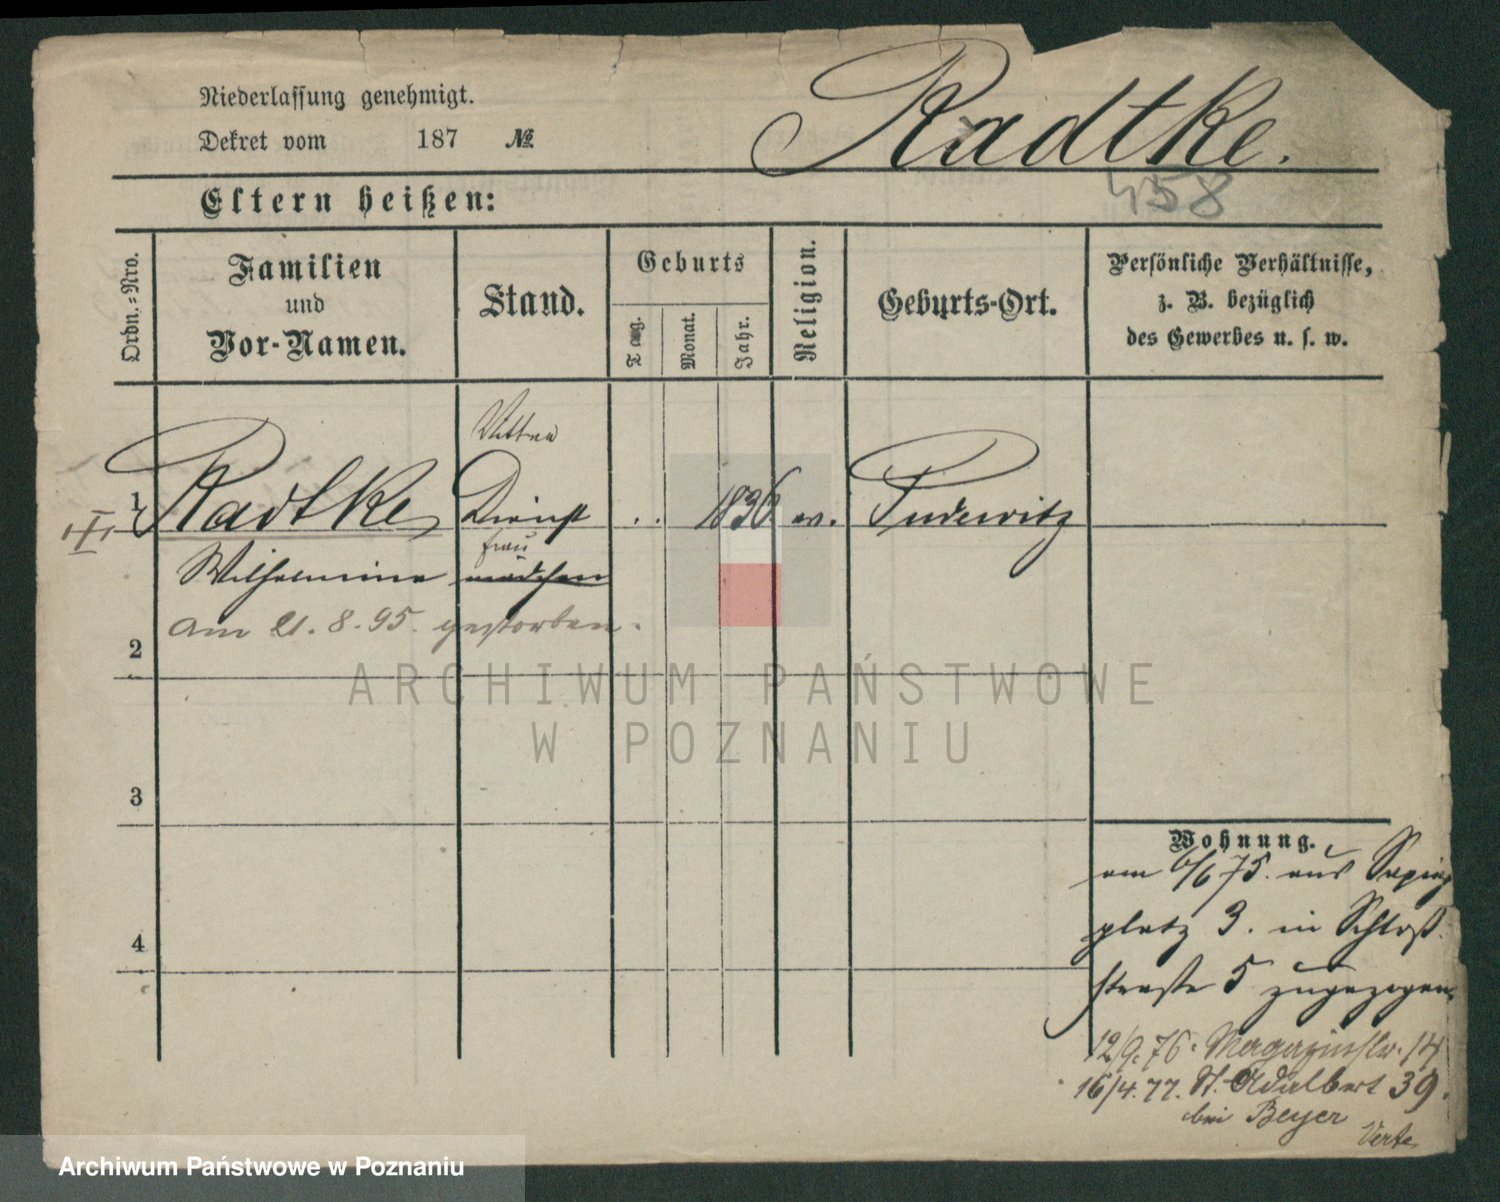 Niederlassung genehmigt.
Radtke.
Dekret vom 187 №
458
Eltern heißen:
Ordn.-Nro.
Familien
und
Vor-Namen.
Stand.
Geburts
Tag.
Monat.
Jahr.
Religion.
Geburts-Ort.
Persönliche Verhältnisse,
z. B. bezüglich
des Gewerbes u. s. w.
1 Radtke Dienst .. 1836 ev. Pudewitz
frau
Wilhelmine mädchen
am 21.8.95. gestorben.
2
ARCHIWUM PAŃSTWOWE
W POZNANIU
3
Wohnung.
am 6/6 75. aus Sapieha
platz 3. in Schloß
straße 5 zugezogen.
4
12/9.76. Magazinstr. 14
16/4.77. St. Adalbert 39.
bei Beyer
Verte
Archiwum Państwowe w Poznaniu